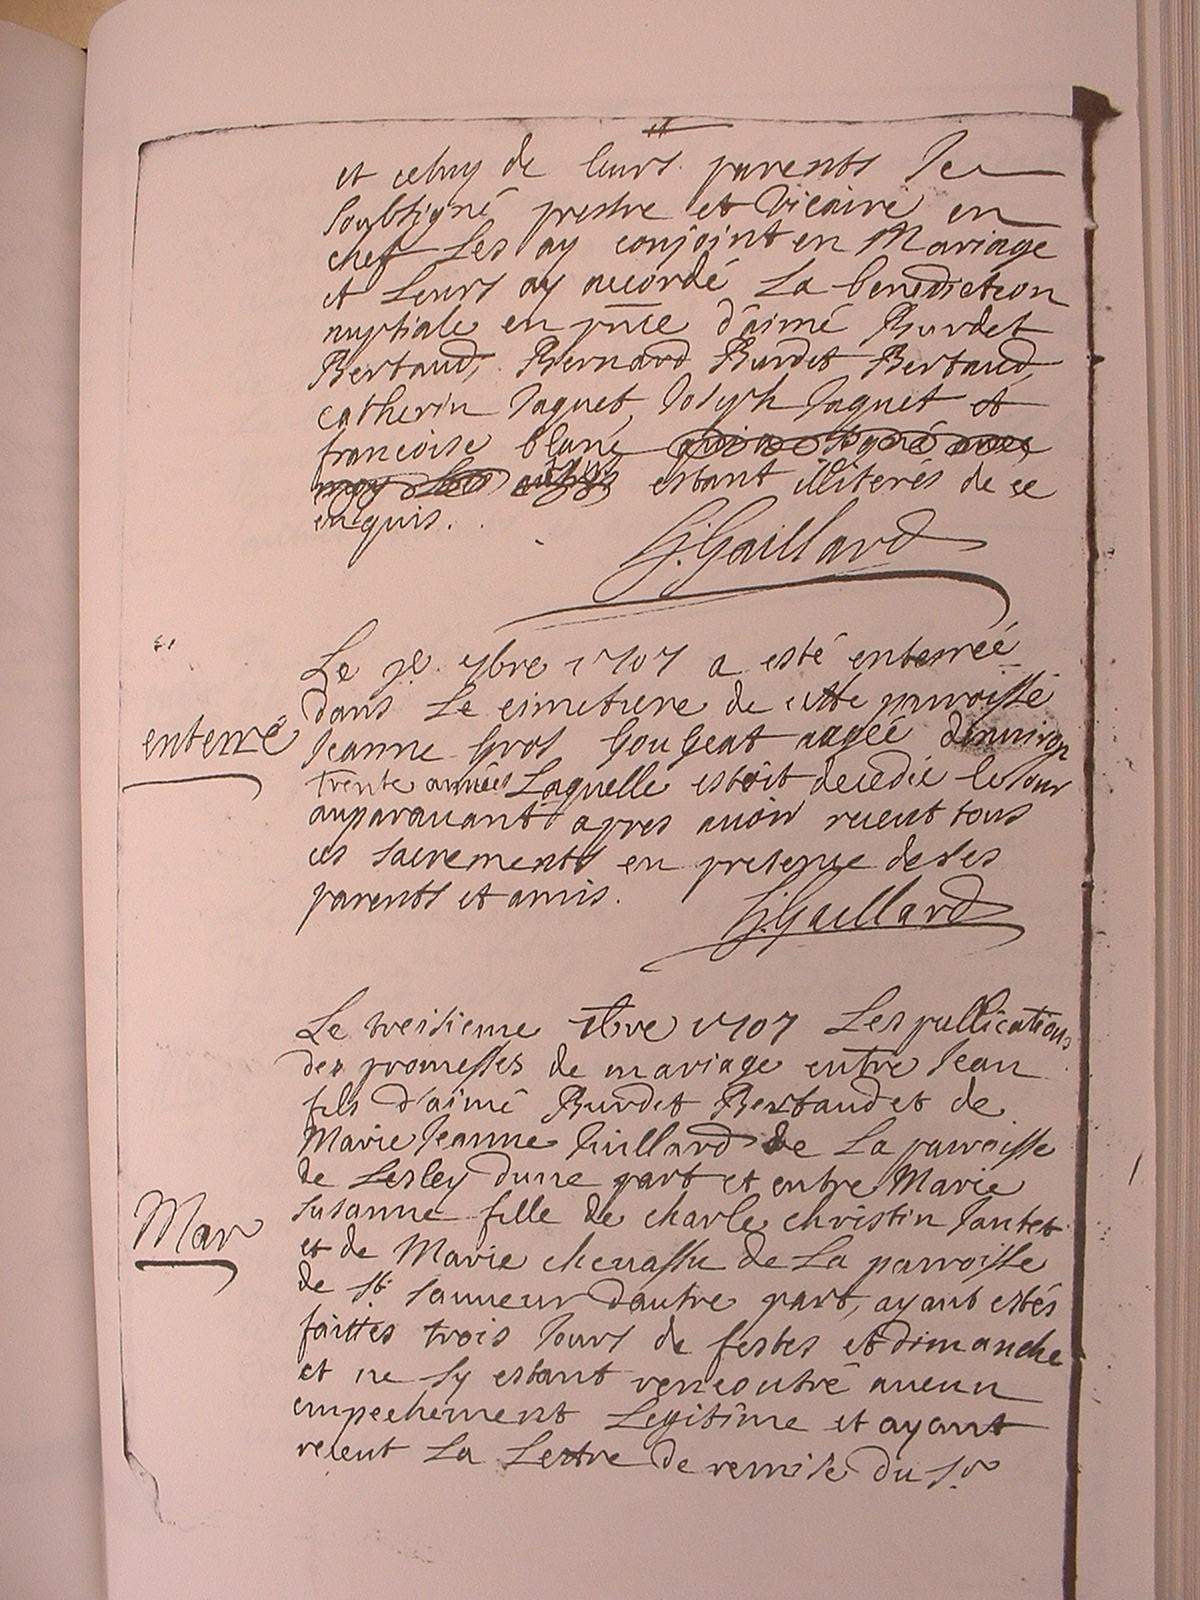 et
et celuy de leurs parents Je
soubsigné prestre et vicaire en
chef Les ay conjoint en Mariage
et Leurs ay accordé La benediction
nuptiale en pnce d'aimé Burdet
Bertaud, Bernard Burdet Bertaud,
catherin Jaquet, Joseph Jaquet et
francoise blanc
estant illiterés de ce
enquis.
G. Gaillard
Le 7bre 1707 a esté enterrée
dans Le cimetiere de cette parroisse
enterré
Jeanne Gros Gougeat aagée denviron
trente années Laquelle estoit decedée le Jour
auparauant apres auoir receut tous
ces sacrements en presence de ses
parents et amis.
G. Gaillard
Le treisieme 1707 Les publications
des promesses de mariage entre Jean
fils d'aimé Burdet Bertaud et de
Marie Jeanne Juillard de La parroisse
de Lesley dune part et entre Marie
Mar
Susanne fille de charle christin Jantet
et de Marie cheuassu de La parroisse
de st sauueur dautre part, ayant estés
faittes trois Jours de festes et dimanche
et ne sy estant rencontré aucun
empechement Legitime et ayant
receut La Lettre de remise du sr